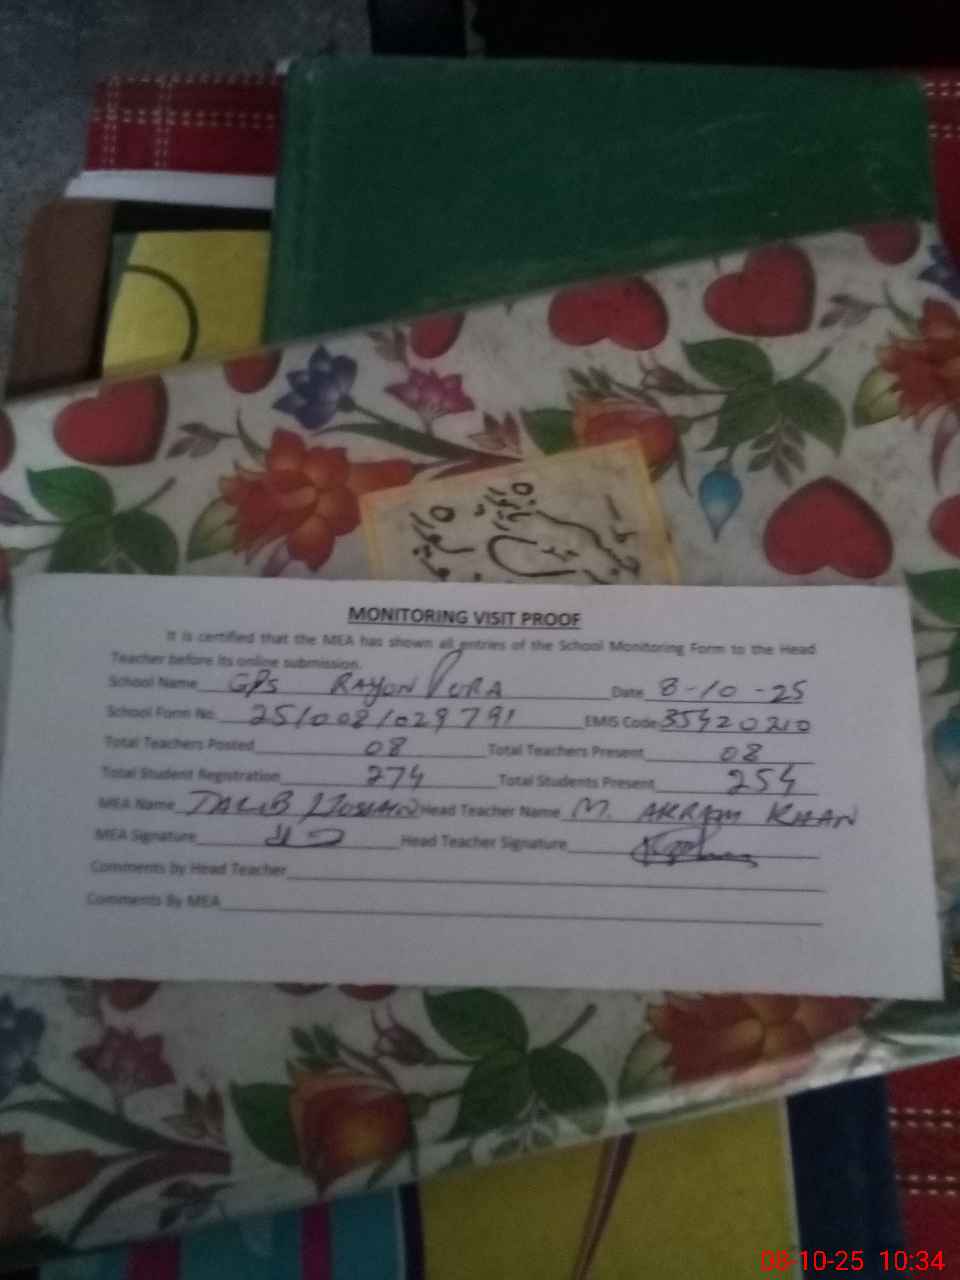 MONITORING VISIT PROOF
It is certified that the MEA has shown all entries of the School Monitoring Form to the Head
Teacher before its online submission.
School Name GPS RAYON PURA Date 8-10-25
School Form No. 2510081029791 EMIS Code 35420210
Total Teachers Posted 08 Total Teachers Present 08
Total Student Registration 274 Total Students Present 254
MEA Name TALIB HUSSAIN Head Teacher Name M. AKRAM KHAN
MEA Signature Head Teacher Signature
Comments by Head Teacher
Comments By MEA
08-10-25 10:34